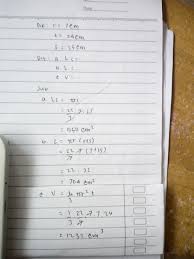 Dik: r = 7 cm
t = 24 cm
s = 25 cm
Dit: a. L S =
b. L =
c. V =
Jwb
a. LS = πrs
= 22 . 7 . 25
7
= 550 cm²
b. L = πr (r+s)
= 22 . 7 (7+25)
7
= 22 . 32
= 704 cm²
c V = 1/3 πr² t
= 1 22 7 7 24
3 7
= 1232 cm³